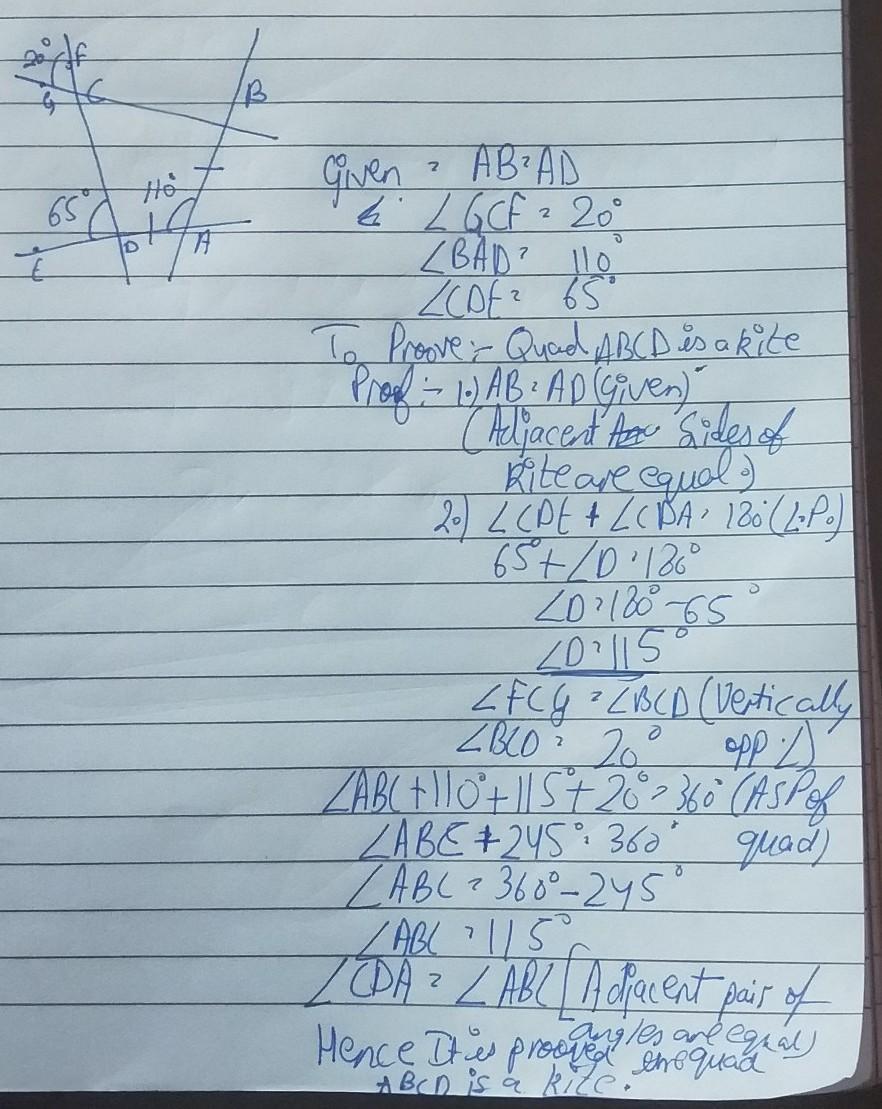 20° F
G C B
65° 110°
E D A
Given = AB = AD
∠GCF = 20°
∠BAD = 110°
∠CDE = 65°
To Proove :- Quad ABCD is a kite
Proof :- 1.) AB = AD (Given)
(Adjacent Sides of
kite are equal.)
2.) ∠CDE + ∠CDA = 180° (L.P.)
65° + ∠D = 180°
∠D = 180° - 65°
∠D = 115°
∠FCG = ∠BCD (Vertically
∠BCD = 20° opp ∠)
∠ABC + 110° + 115° + 20° = 360° (ASP of
∠ABC + 245° = 360° quad)
∠ABC = 360° - 245°
∠ABC = 115°
∠CDA = ∠ABC [Adjacent pair of
angles are equal)
Hence It is prooved quad
ABCD is a kite.